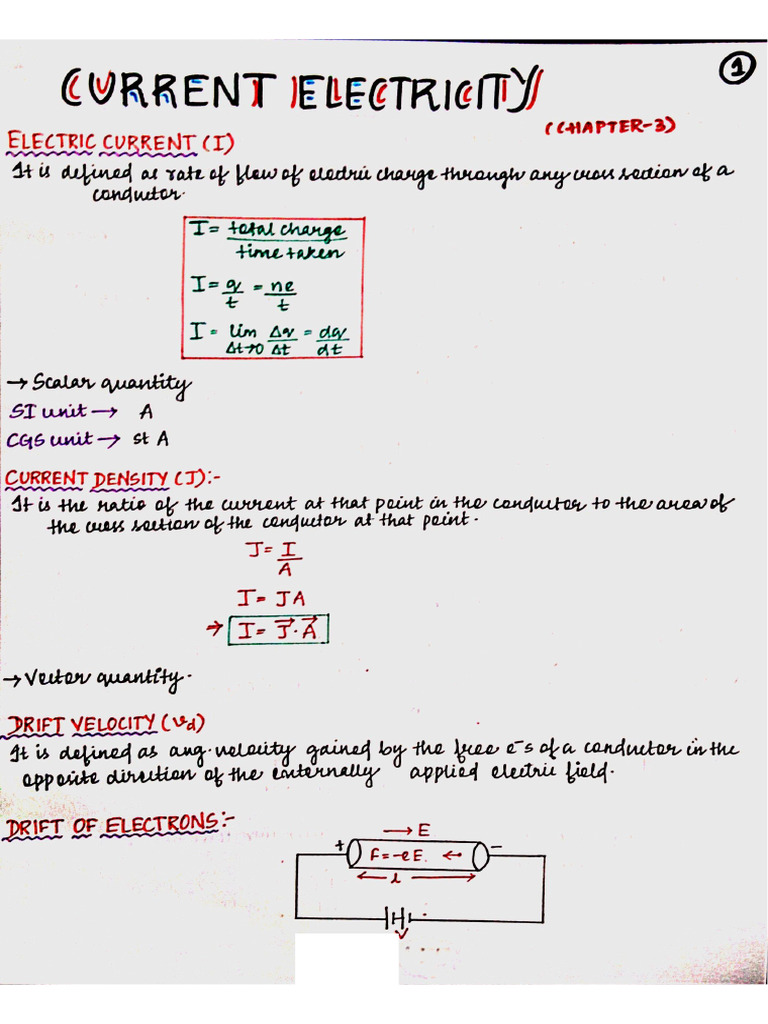 1
CURRENT ELECTRICITY
(CHAPTER-3)
ELECTRIC CURRENT (I)
It is defined as rate of flow of electric charge through any cross section of a
conductor.
I = total charge
time taken
I = q = ne
t t
I = lim Δq = dq
Δt→0 Δt dt
→ Scalar quantity
SI unit → A
CGS unit → st A
CURRENT DENSITY (J):-
It is the ratio of the current at that point in the conductor to the area of
the cross section of the conductor at that point.
J = I
A
I = JA
⇒ I = J⃗·A⃗
→ Vector quantity.
DRIFT VELOCITY (vd)
It is defined as avg. velocity gained by the free e⁻s of a conductor in the
opposite direction of the externally applied electric field.
DRIFT OF ELECTRONS:-
→ E
+ F = -eE. ← −
← l →
V